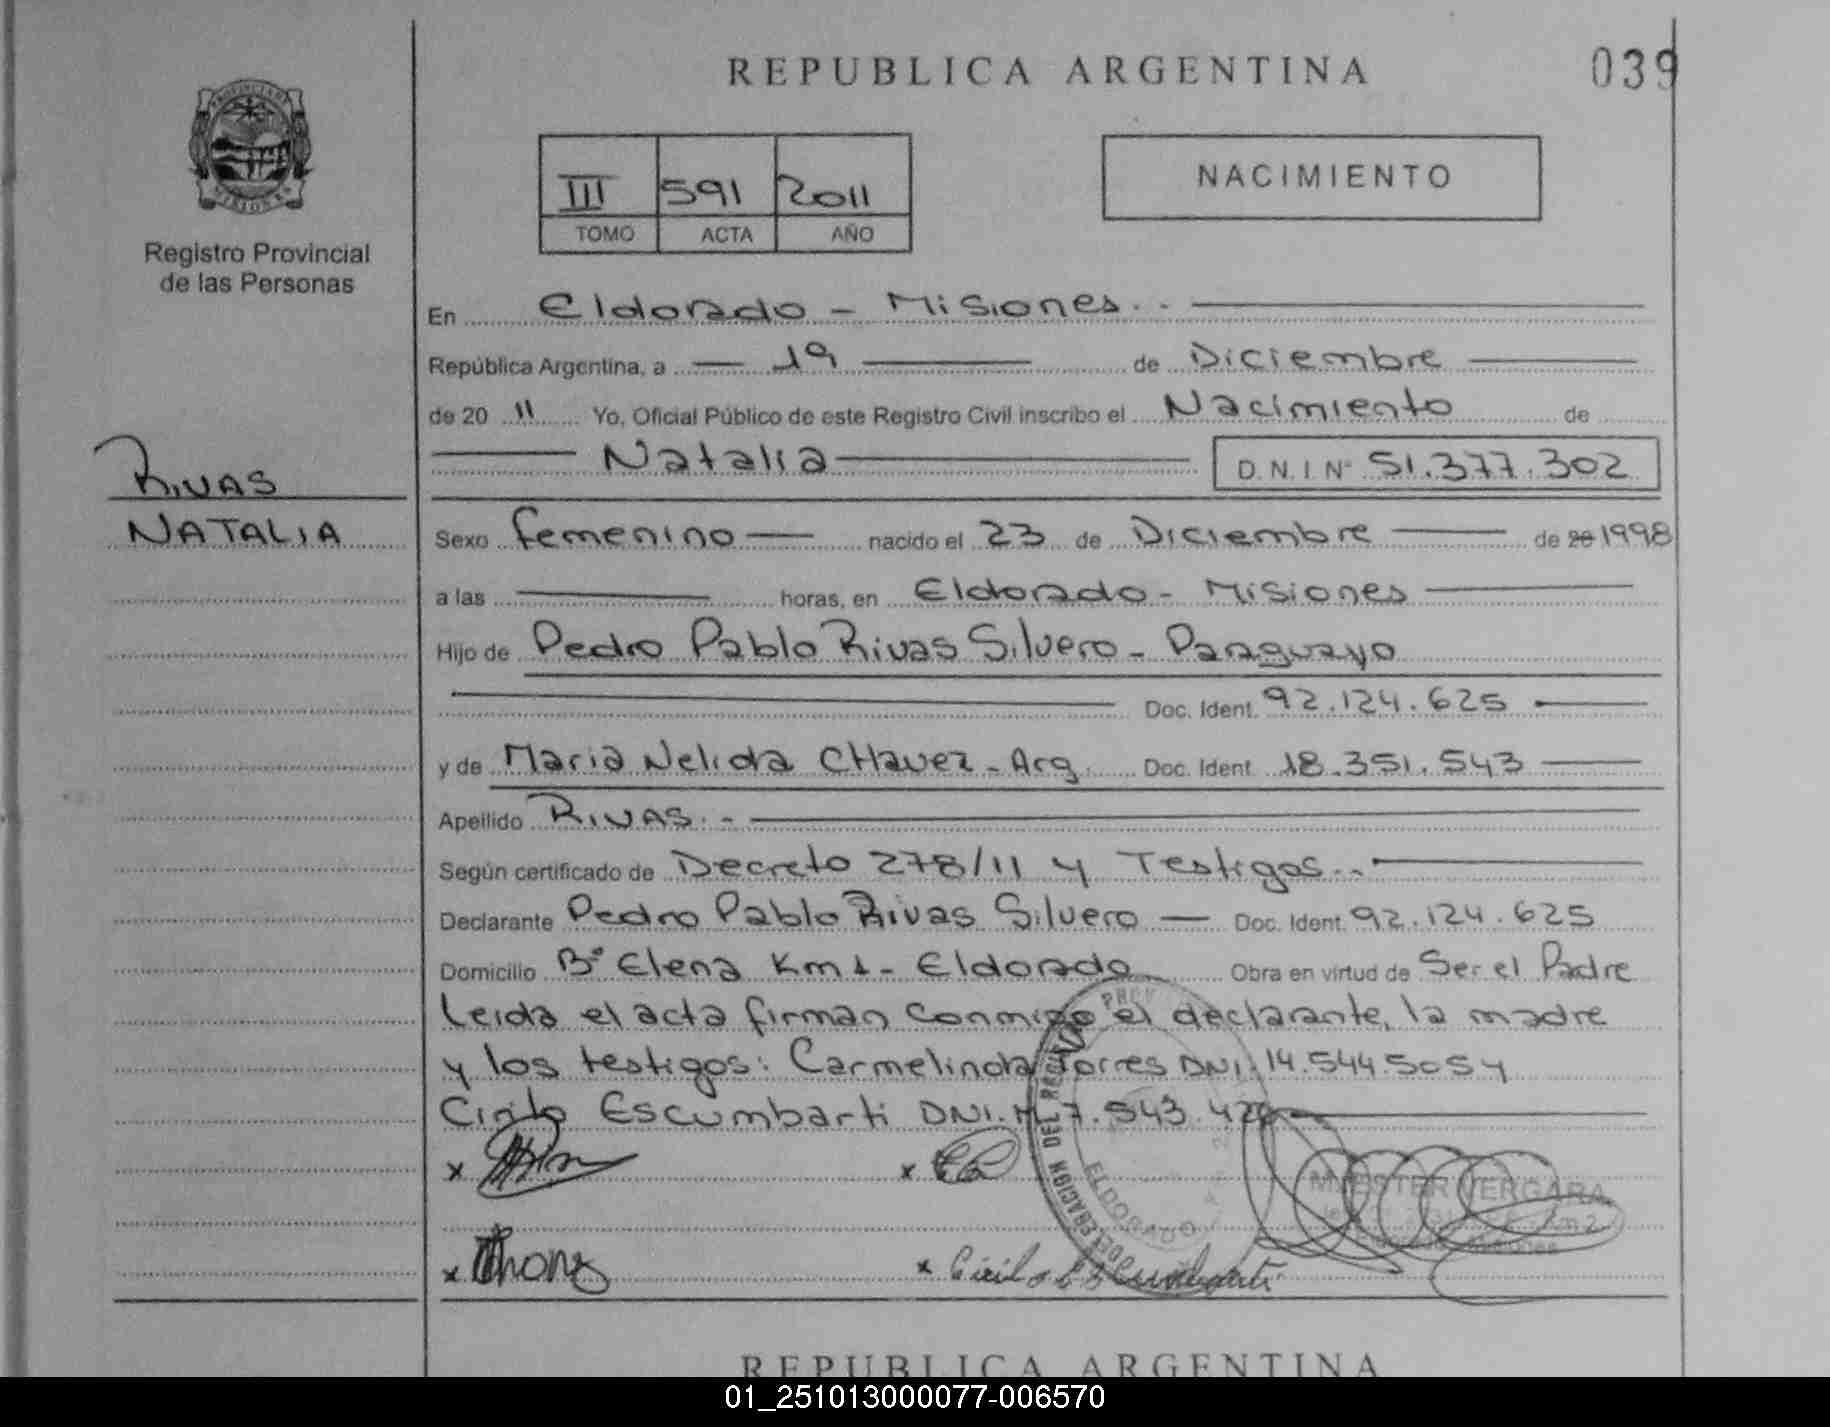 REPUBLICA ARGENTINA
039
PROVINCIA DE MISIONES
Registro Provincial
de las Personas
III 591 2011
TOMO ACTA AÑO
NACIMIENTO
En Eldorado - Misiones.-
República Argentina, a 19 de Diciembre
de 20 11 Yo, Oficial Público de este Registro Civil inscribo el Nacimiento de
Natalia D.N.I. Nº 51.377.302
RIVAS
NATALIA
Sexo femenino nacido el 23 de Diciembre de 20 1998
a las horas, en Eldorado - Misiones
Hijo de Pedro Pablo Rivas Silvero - Paraguayo
Doc. Ident. 92.124.625
y de Maria Nelida CHavez - Arg. Doc. Ident 18.351.543
Apellido RIVAS.-
Según certificado de Decreto 278/11 y Testigos..
Declarante Pedro Pablo Rivas Silvero Doc. Ident. 92.124.625
Domicilio Bº Elena Km 1 - Eldorado Obra en virtud de Ser el Padre
Leida el acta firman conmigo el declarante, la madre
y los testigos: Carmelinda Torres DNI. 14.544.5054
Cirilo Escumbarti DNI. M 7.543.42
x x
x x Cirilo Escumbarti
DELEGACION DEL
ELDORADO
VERGARA
REPUBLICA ARGENTINA
01_251013000077-006570